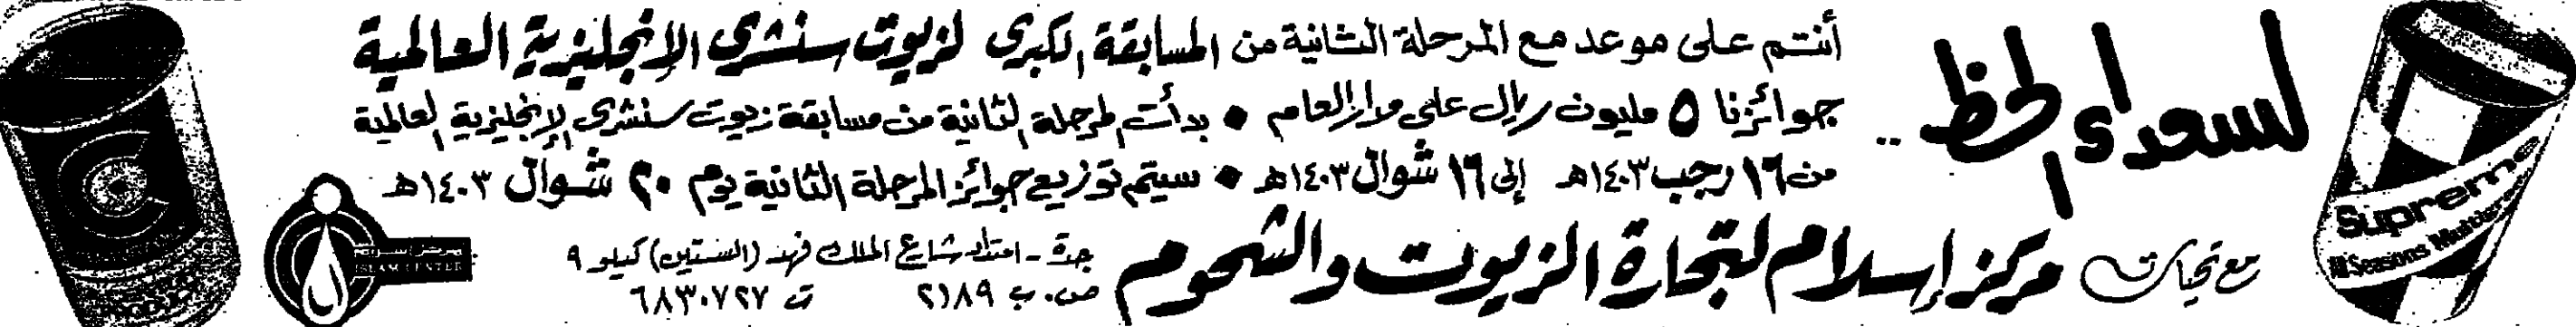 لسعداء الحظ ..
أنتم على موعد مع المرحلة الثانية من المسابقة الكبرى لزيوت سنشري الإنجليزية العالمية
جوائزنا ٥ مليون ريال على مدار العام • بدأت المرحلة الثانية من مسابقة زيوت سنشري الإنجليزية العالمية
من ١٦ رجب ١٤٠٣هـ إلى ١٦ شوال ١٤٠٣هـ • سيتم توزيع جوائز المرحلة الثانية يوم ٢٠ شوال ١٤٠٣هـ
مع تحيات مركز إسلام لتجارة الزيوت والشحوم
جدة - امتداد شارع الملك فهد (الستين) كيلو ٩
ص.ب ٢١٨٩ ت ٦٨٣٠٧٢٧
ISLAM CENTER
Supreme
All Seasons